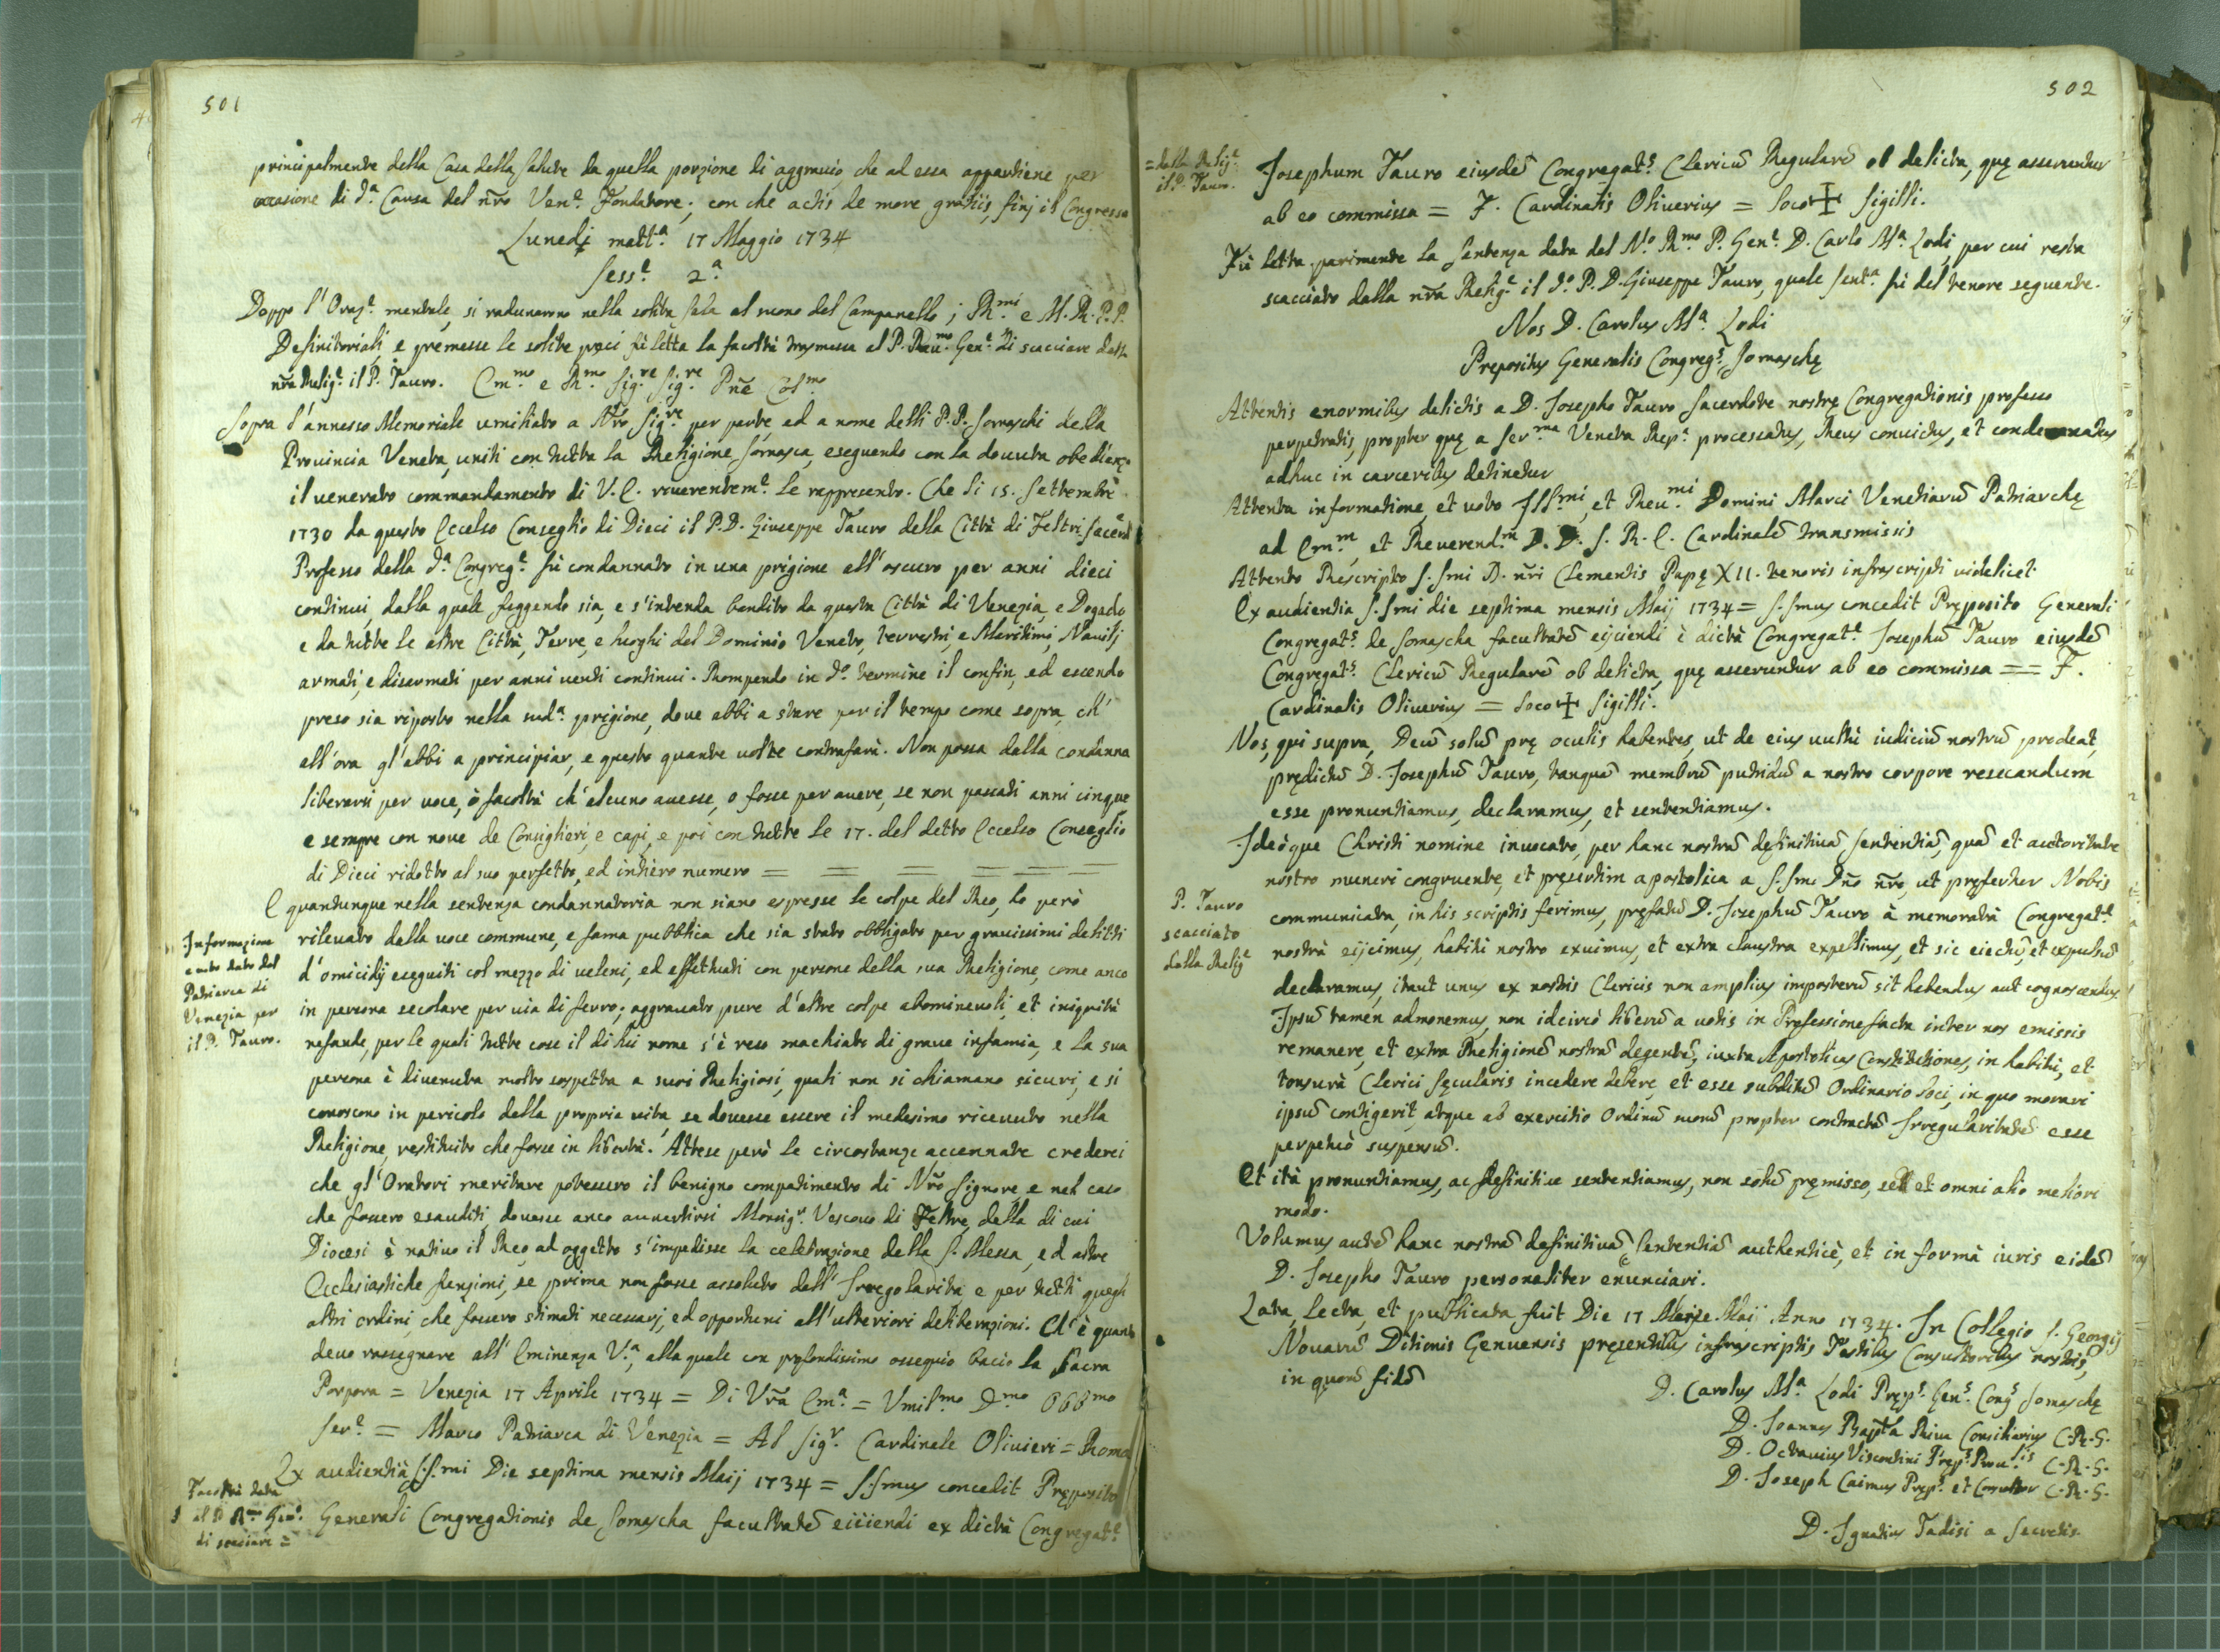 501
principalmente della Casa della Salute da quella porzione di aggravio, che ad essa appartiene per
occasione di d.ª Causa del nr̃o Ven.e Fondatore; con che actis de more gratiis, finj il Congresso
Lunedi matt.ª 17 Maggio 1734
Sess.e 2.ª
Doppo l'Oraz.e mentale, si radunarono nella solita sala al suono del Campanello; Rh.mi e M. R. P. P.
Definitoriali, e premesse le solite preci fù letta la facoltà trasmessa al P. Reu.mo Gen.e di scacciare dalla
nr̃a Relig.e il P. Tauro. Em.mo e R.mo Sig.re Sig.re Pñe Col.mo
Sopra l'annesso Memoriale umiliato a Nr̃o Sig.re per parte, ed a nome delli P.P. Somaschi della
Prouincia Veneta, uniti con tutta la Religione Somasca, eseguendo con la douuta obedienz.ª
il uenerato commandamento di V. E. riuerentem.e le rappresento. Che li 15. Settembre
1730 da questo Eccelso Conseglio di Dieci il P. D. Giuseppe Tauro della Città di Feltri Sacerd.e
Professo della d.ª Congreg.e fù condannato in una prigione all'oscuro per anni dieci
continui, dalla quale fuggendo sia, e s'intenda bandito da questa Città di Venezia, e Dogado
e da tutte le altre Città, Terre, e luoghi del Dominio Veneto, terrestri, e Maritimi, Nauilj
armati, e disarmati per anni uenti continui. Rompendo in d.o termine il confin, ed essendo
preso sia riposto nella sud.ª prigione, doue abbi a stare per il tempo come sopra, ch'
all'ora gl'abbi a principiar, e questo quante uolte contrafarà. Non possa dalla condanna
liberarsi per uoce, ò facoltà ch'alcuno auesse, o fosse per auere, se non passati anni cinque
e sempre con noue de Consiglieri, e capi, e poi con tutte le 17. del detto Eccelso Conseglio
di Dieci ridotto al suo perfetto, ed intiero numero = = = = = =
E quantunque nella sentenza condannatoria non siano espresse le colpe del Reo, ho però
Informazione
e uoto dato dal
Patriarca di
Venezia per
il P. Tauro.
rileuato dalla uoce commune, e fama pubblica che sia stato obbligato per grauissimi delitti
d'omicidij eseguiti col mezzo di ueleni, ed effettuati con persone della sua Religione, come anco
in persona secolare per uia di ferro; aggrauato pure d'altre colpe abomineuoli, et iniquità
nefande, per le quali tutte cose il di lui nome s'è reso machiato di graue infamia, e la sua
persona è diuenuta molto sospetta a suoi Religiosi, quali non si chiamano sicuri, e si
conoscono in pericolo della propria uita, se douesse essere il medesimo riceuuto nella
Religione, restituito che fosse in libertà. Attese però le circostanze accennate crederei
che gl'Oratori meritare potessero il benigno compatimento di Nr̃o Signore, e nel caso
che fossero esauditi, douesse anco auuertirsi Monsig.r Vescouo di Feltre, della di cui
Diocesi è natiuo il Reo, ad oggetto s'impedisse la celebrazione della S. Messa, ed altre
Ecclesiastiche funzioni, se prima non fosse assoluto dall'Irregolarità e per tutti quegli
altri ordini, che fossero stimati necessarj, ed opportuni all'ulteriori deliberazioni. Ch'è quanto
deuo rassegnare all'Eminenza V.ª, alla quale con profondissimo ossequio bacio la Sacra
Porpora = Venezia 17 Aprile 1734 = Di Vr̃a Em.ª = Vmil.mo D.mo Obb.mo
Ser.e = Marco Patriarca di Venezia = Al Sig.r Cardinale Oliuieri = Roma
Ex audientia S.S.mi Die septima mensis Maij 1734 = S.Smus concedit Pręposito
Facoltà data
al P. R.mo Gen.e
di scacciare =
Generali Congregationis de Somascha facultatẽ eiiiendi ex dictà Congregat.e
502
= dalla Relig.e
il P. Tauro.
Josephum Tauro eiusdẽ Congregat.s Clericũ Regularẽ ob delicta, quę asseruntur
ab eo commissa = F. Cardinalis Oliuerius = Loco + Sigilli.
Fù letta parimente la sentenza data dal N.o R.mo P. Gen.e D. Carlo M.ª Lodi, per cui resta
scacciato dalla nr̃a Relig.e il d.o P. D. Giuseppe Tauro, quale sent.ª fù del tenore seguente.
Nos D. Carolus M.ª Lodi
Prepositus Generalis Congreg.s Somaschę
Attentis enormibus delictis a D. Josepho Tauro Sacerdote nostrę Congregationis professo
perpetratis, propter quę a Ser.ma Veneta Rep.ª processatus, Reus conuictus, et condemnatus
adhuc in carceribus detinetur
Attenta informatione, et uoto Ill.mi, et Reu.mi Domini Marci Venetiarũ Patriarchę
ad Em.m et Reuerend.m D. D. S. R. E. Cardinalẽ transmissis
Attento Rescripto S.Smi D. nr̃i Clementis Papę XII. tenoris infrascripti uidelicet
Ex audientia S.Smi die septima mensis Maij 1734 = S.Smus concedit Pręposito Generali
Congregat.s de Somascha facultatẽ eijciendi è dictà Congregat.e Josephũ Tauro eiusdẽ
Congregat.s Clericũ Regularẽ ob delicta, quę asseruntur ab eo commissa == F.
Cardinalis Oliuerius = Loco + Sigilli.
Nos, qui supra, Deũ solũ prę oculis habentes, ut de eius uultù iudiciũ nostrũ prodeat,
prędictũ D. Josephũ Tauro, tanquã membrũ putridũ a nostro corpore resecandum
esse pronuntiamus, declaramus, et sententiamus.
Ideòque Christi nomine inuocato, per hanc nostrã definitiuã sententiã, quã et auctoritate
nostro muneri congruente, et pręsertim apostolica a S.Smo Dño nr̃o, ut pręfertur Nobis
P. Tauro
scacciato
dalla Relig.e
communicata, in his scriptis ferimus, pręfatũ D. Josephũ Tauro à memoratà Congregat.e
nostrà eijcimus, habitù nostro exuimus, et extra claustra expellimus, et sic eiectũ, et expulsũ
declaramus, itaut unus ex nostris Clericis non amplius imposterũ sit habendus aut cognoscendus
Ipsũ tamen admonemus, non idcircò liberũ a uotis in Professione facta inter nos emissis
remanere, et extra Religionẽ nostrã degentẽ, iuxta Apostolicas Constitutiones, in habitù, et
tonsurà Clerici sęcularis incedere debere, et esse subditũ Ordinario loci, in quo morari
ipsũ contigerit, atque ab exercitio Ordinũ suorũ propter contractã Irregularitatẽ esse
perpetuò suspensũ.
Et ità pronuntiamus, ac definitiue sententiamus, non solũ pręmisso, sed et omni alio meliori
modo.
Volumus autẽ hanc nostrã definitiuã sententiã authenticè, et in formà iuris eidẽ
D. Josepho Tauro personaliter enunciari.
Lata, lecta, et publicata fuit Die 17 Maij Anno 1734. In Collegio S. Georgij
Nouarũ Ditionis Genuensis pręsentibus infrascriptis Testibus Consultoribus nostris,
in quorũ fidẽ
D. Carolus M.ª Lodi Pręp.s Gen.s Cong.s Somaschę
D. Joannes Bapt.ª Riua Consiliarius C. R. S.
D. Octauius Viscontini Pręp.s Prou.lis C. R. S.
D. Joseph Caimus Pręp.s et Consultor C. R. S.
D. Ignatius Tadisi a Secretis.